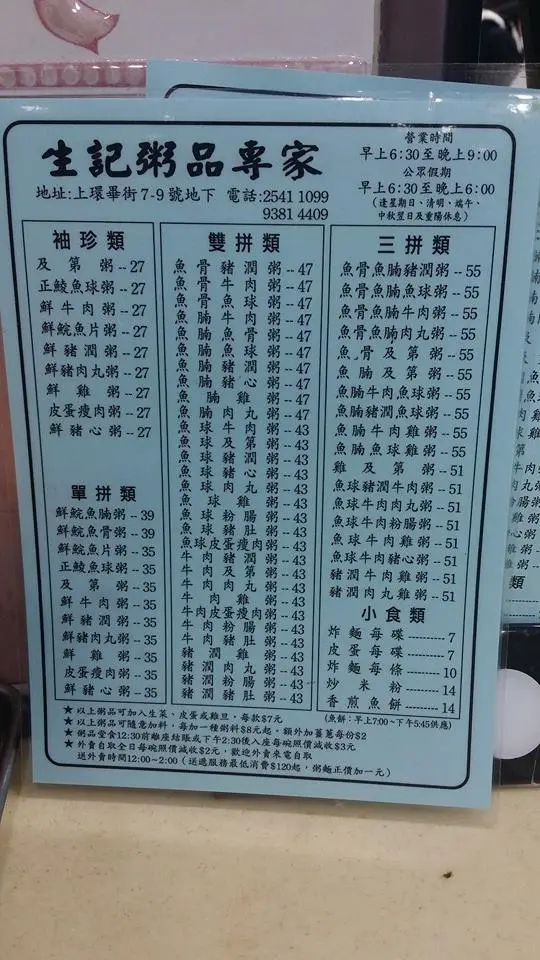 生記粥品專家
地址:上環畢街7-9號地下 電話:2541 1099
9381 4409
營業時間
早上6:30至晚上9:00
公眾假期
早上6:30至晚上6:00
(逢星期日、清明、端午、
中秋翌日及重陽休息)
袖珍類
及第粥--27
正鯪魚球粥--27
鮮牛肉粥--27
鮮鯇魚片粥--27
鮮豬潤粥--27
鮮豬肉丸粥--27
鮮雞粥--27
皮蛋瘦肉粥--27
鮮豬心粥--27
單拼類
鮮鯇魚腩粥--39
鮮鯇魚骨粥--39
鮮鯇魚片粥--35
正鯪魚球粥--35
及第粥--35
鮮牛肉粥--35
鮮豬潤粥--35
鮮豬肉丸粥--35
鮮雞粥--35
皮蛋瘦肉粥--35
鮮豬心粥--35
雙拼類
魚骨豬潤粥--47
魚骨牛肉粥--47
魚骨魚球粥--47
魚腩牛肉粥--47
魚腩魚骨粥--47
魚腩魚球粥--47
魚腩豬潤粥--47
魚腩豬心粥--47
魚腩雞粥--47
魚腩肉丸粥--47
魚球牛肉粥--43
魚球及第粥--43
魚球豬潤粥--43
魚球豬心粥--43
魚球肉丸粥--43
魚球雞粥--43
魚球粉腸粥--43
魚球豬肚粥--43
魚球皮蛋瘦肉粥--43
牛肉豬潤粥--43
牛肉及第粥--43
牛肉肉丸粥--43
牛肉雞粥--43
牛肉皮蛋瘦肉粥--43
牛肉粉腸粥--43
牛肉豬肚粥--43
豬潤雞粥--43
豬潤肉丸粥--43
豬潤粉腸粥--43
豬潤豬肚粥--43
三拼類
魚骨魚腩豬潤粥--55
魚骨魚腩魚球粥--55
魚骨魚腩牛肉粥--55
魚骨魚腩肉丸粥--55
魚骨及第粥--55
魚腩及第粥--55
魚腩牛肉魚球粥--55
魚腩豬潤魚球粥--55
魚腩牛肉雞粥--55
魚腩魚球雞粥--55
雞及第粥--51
魚球豬潤牛肉粥--51
魚球牛肉肉丸粥--51
魚球牛肉粉腸粥--51
魚球牛肉雞粥--51
魚球牛肉豬心粥--51
豬潤牛肉雞粥--51
豬潤肉丸雞粥--51
小食類
炸麵每碟----------7
皮蛋每碟----------7
炸麵每條----------10
炒米粉----------14
香煎魚餅----------14
(魚餅:早上7:00~下午5:45供應)
★以上粥品可加入生菜、皮蛋或雞旦,每款$7元
★以上粥品可隨意加料,每加一種粥料$8元起。額外加薑蔥每份$2
★粥品堂食12:30前離座結賬或下午2:30後入座每碗照價減收$3元
★外賣自取全日每碗照價減收$2元,歡迎外賣來電自取
送外賣時間12:00~2:00(送遞服務最低消費$120起,粥麵正價加一元)